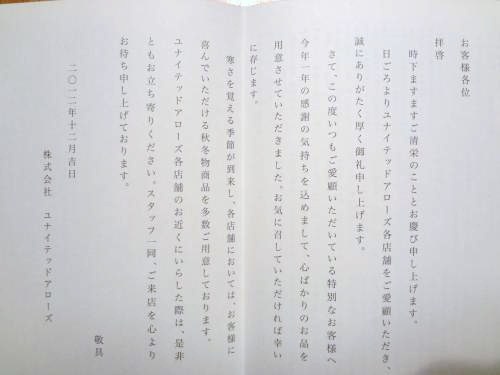 お客様各位
拝啓
時下ますますご清栄のこととお慶び申し上げます。
日ごろよりユナイテッドアローズ各店舗をご愛顧いただき、
誠にありがたく厚く御礼申し上げます。
さて、この度いつもご愛顧いただいている特別なお客様へ
今年一年の感謝の気持ちを込めまして、心ばかりのお品を
用意させていただきました。お気に召していただければ幸い
に存じます。
寒さを覚える季節が到来し、各店舗においては、お客様に
喜んでいただける秋冬物商品を多数ご用意しております。
ユナイテッドアローズ各店舗のお近くにいらした際は、是非
ともお立ち寄りください。スタッフ一同、ご来店を心より
お待ち申し上げております。
敬具
二〇一二年十二月吉日
株式会社 ユナイテッドアローズ